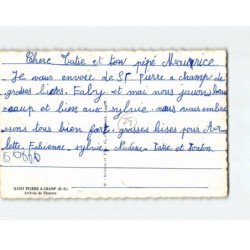 Chere Tatie et ton pépé Maurice
Je vous envoie de St pierre a champ de
grosses bistes. Fabry et mai nous jouons beau
coup et bien avec sylvie nous vous embra
ssons tous bien fort. grosses bises pour Ar
lette. Fabienne - sylvie - Nadine - Tatie et Tonton,
(79)
SAINT PIERRE A CHAMP (D.-S.)
Arrivée de Thouars